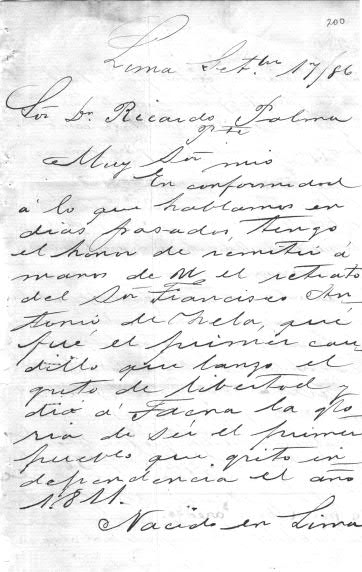 200
Lima Setbre 17/86
Sōr Dr Ricardo Palma
Pte
Muy Sōr mio
En conformidad
á lo que hablamos en
dias pasados, tengo
el honor de remitir á
manos de U el retrato
del Sōr Francisco An
tonio de Zela, que
fué el primer cau
dillo que lanzo el
grito de libertad y
dió á Tacna la glo
ria de sér el primer
pueblo que gritó in
dependencia el año
1811.
Nacido en Lima